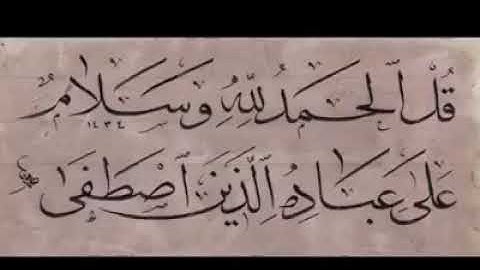 قُلِ الْحَمْدُ لِلَّهِ وَسَلَامٌ
١٤٣٤
عَلَىٰ عِبَادِهِ الَّذِينَ اصْطَفَىٰ